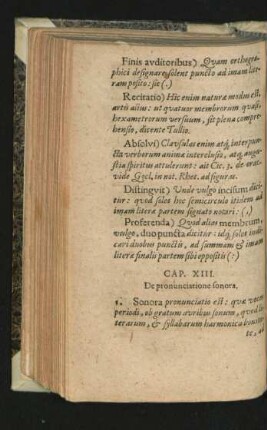 Finis avditoribus) Quam orthogra-
phici designare solent puncto ad imam lite-
ram posito: sic (.)
Recitatio) Hic enim naturæ modus est,
artis alius: ut quatuor membrorum quasi
hexametrorum versuum, sit plena compre-
hensio, dicente Tullio.
Absolvi) Clausulas enim atq; interpun-
cta verborum anima interclusio, atq; angu-
stia spiritus attulerunt: ait Cic. 3. de orat.
vide Gocl. in not. Rhet. ad figuras.
Distingvit) Unde vulgo incisum dici-
tur: quod solet hoc semicirculo itidem ad
imam litera partem signato notari: (,)
Proferenda) Quod aliàs membrum,
vulgo, duo puncta dicitur: idq; solet indi-
cari duobus punctis, ad summam & imam
literæ finalis partem sibi oppositis (:)
CAP. XIII.
De pronunciatione sonora.
1. Sonora pronunciatio est: quæ vocem
periodi, ob gratum auribus sonum, quoad li-
terarum, & syllabarum harmonica